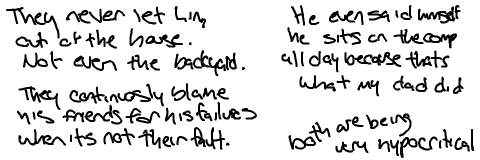 They never let him
out of the house.
Not even the backyard.
They continuosly blame
his friends for his failures
when its not their fault.
He even said himself
he sits on the comp
all day because thats
what my dad did
both are being
very hypocritical